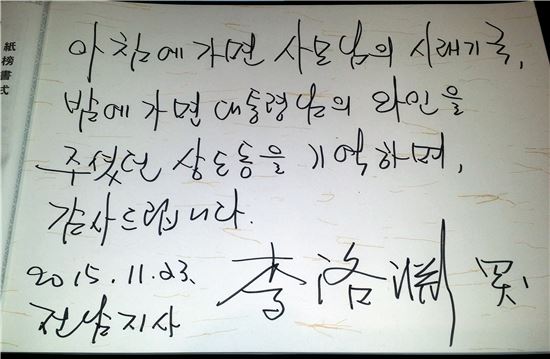 紙榜書式
아침에 가면 사모님의 시래기국,
밤에 가면 대통령님의 와인을
주셨던 상도동을 기억하며,
감사드립니다.
2015.11.23.
전남지사
李洛淵 哭.